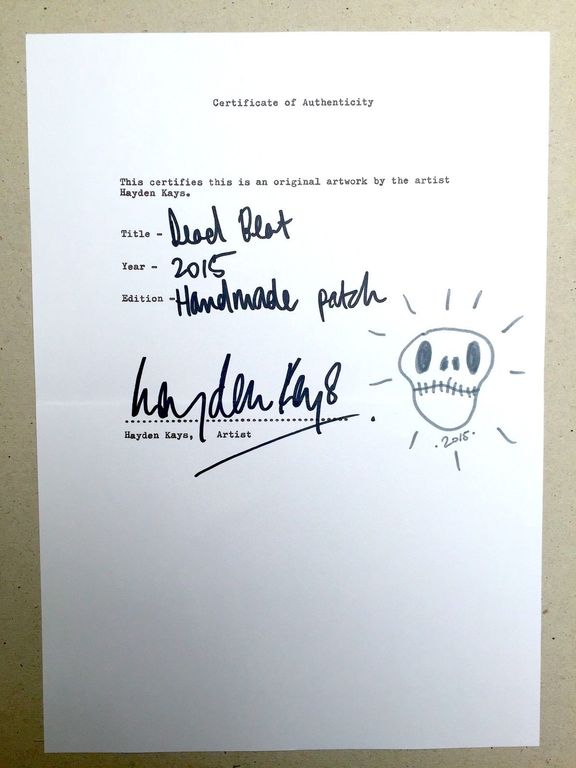 Certificate of Authenticity
This certifies this is an original artwork by the artist
Hayden Kays.
Title - Dead Beat
Year - 2015
Edition - Handmade patch
Hayden Kays
Hayden Kays, Artist
.2015.